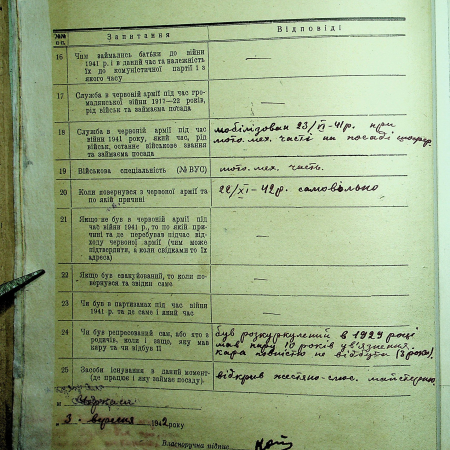 №№ п-п. Запитання Відповіді
16 Чим займались батьки до війни
1941 р. і в даний час та належність
їх до комуністичної партії і з
якого часу —
17 Служба в червоній армії під час гро-
мадянської війни 1917—22 років,
рід військ та займаєма посада —
18 Служба в червоній армії під час
війни 1941 року, який час, рід
військ, останнє військове звання
та займаєма посада
мобілізован 23/VI-41р. при
мото.мех. часті на посаді
19 Військова спеціяльність (№ ВУС) мото.мех. часть.
20 Коли повернувся з червоної армії та
по якій причині 22/XI-42р. самовільно
21 Якщо не був в червоній армії під
час війни 1941 р., то по якій при-
чині та де перебував підчас від-
ходу червоної армії (чим може
підтвердити, а коли свідками то їх
адреса) —
22 Якщо був евакуйований, то коли по-
вернувся та звідки саме —
23 Чи був в партизанах під час війни
1941 р. та де саме і який час —
24 Чи був репресований сам, або хто з
родичів, коли і защо, яку мав
кару та чи відбув її
був розкуркулений в 1929 році
мав кару 10 років ув'язнення.
кара повністю не відбута (3 роки).
25 Засоби існування в даний момент-
(де працює і яку займає посаду) відкрив жестяно-слюс. майстерню.
м.
3. вересня 1942 року
Власноручна підпис